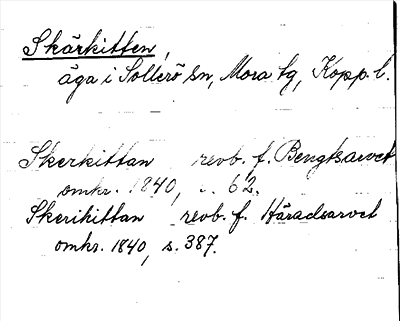 Skärkitten,
äga i Sollerö sn, Mora tg, Kopp. l.
Skerkittan revb. f. Bengtsarvet
omkr. 1840, s. 62.
Skerikittan revb. f. Häradsarvet
omkr. 1840, s. 387.